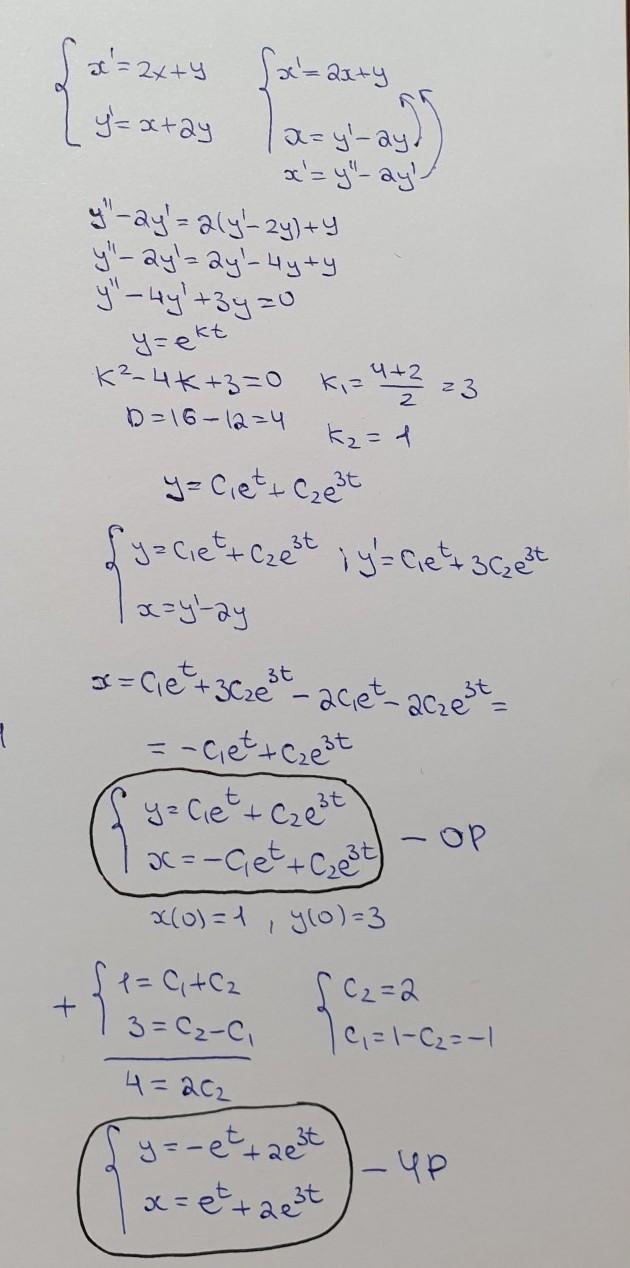 { x' = 2x + y { x' = 2x + y
y' = x + 2y x = y' - 2y
x' = y'' - 2y'
y'' - 2y' = 2(y' - 2y) + y
y'' - 2y' = 2y' - 4y + y
y'' - 4y' + 3y = 0
y = e^{kt}
k² - 4k + 3 = 0 k₁ = (4+2)/2 = 3
D = 16 - 12 = 4 k₂ = 1
y = C₁e^t + C₂e^{3t}
{ y = C₁e^t + C₂e^{3t} ; y' = C₁e^t + 3C₂e^{3t}
x = y' - 2y
x = C₁e^t + 3C₂e^{3t} - 2C₁e^t - 2C₂e^{3t} =
= -C₁e^t + C₂e^{3t}
{ y = C₁e^t + C₂e^{3t}
x = -C₁e^t + C₂e^{3t} - ОР
x(0) = 1 , y(0) = 3
+ { 1 = C₁ + C₂ { C₂ = 2
3 = C₂ - C₁ C₁ = 1 - C₂ = -1
4 = 2C₂
{ y = -e^t + 2e^{3t}
x = e^t + 2e^{3t} - ЧР